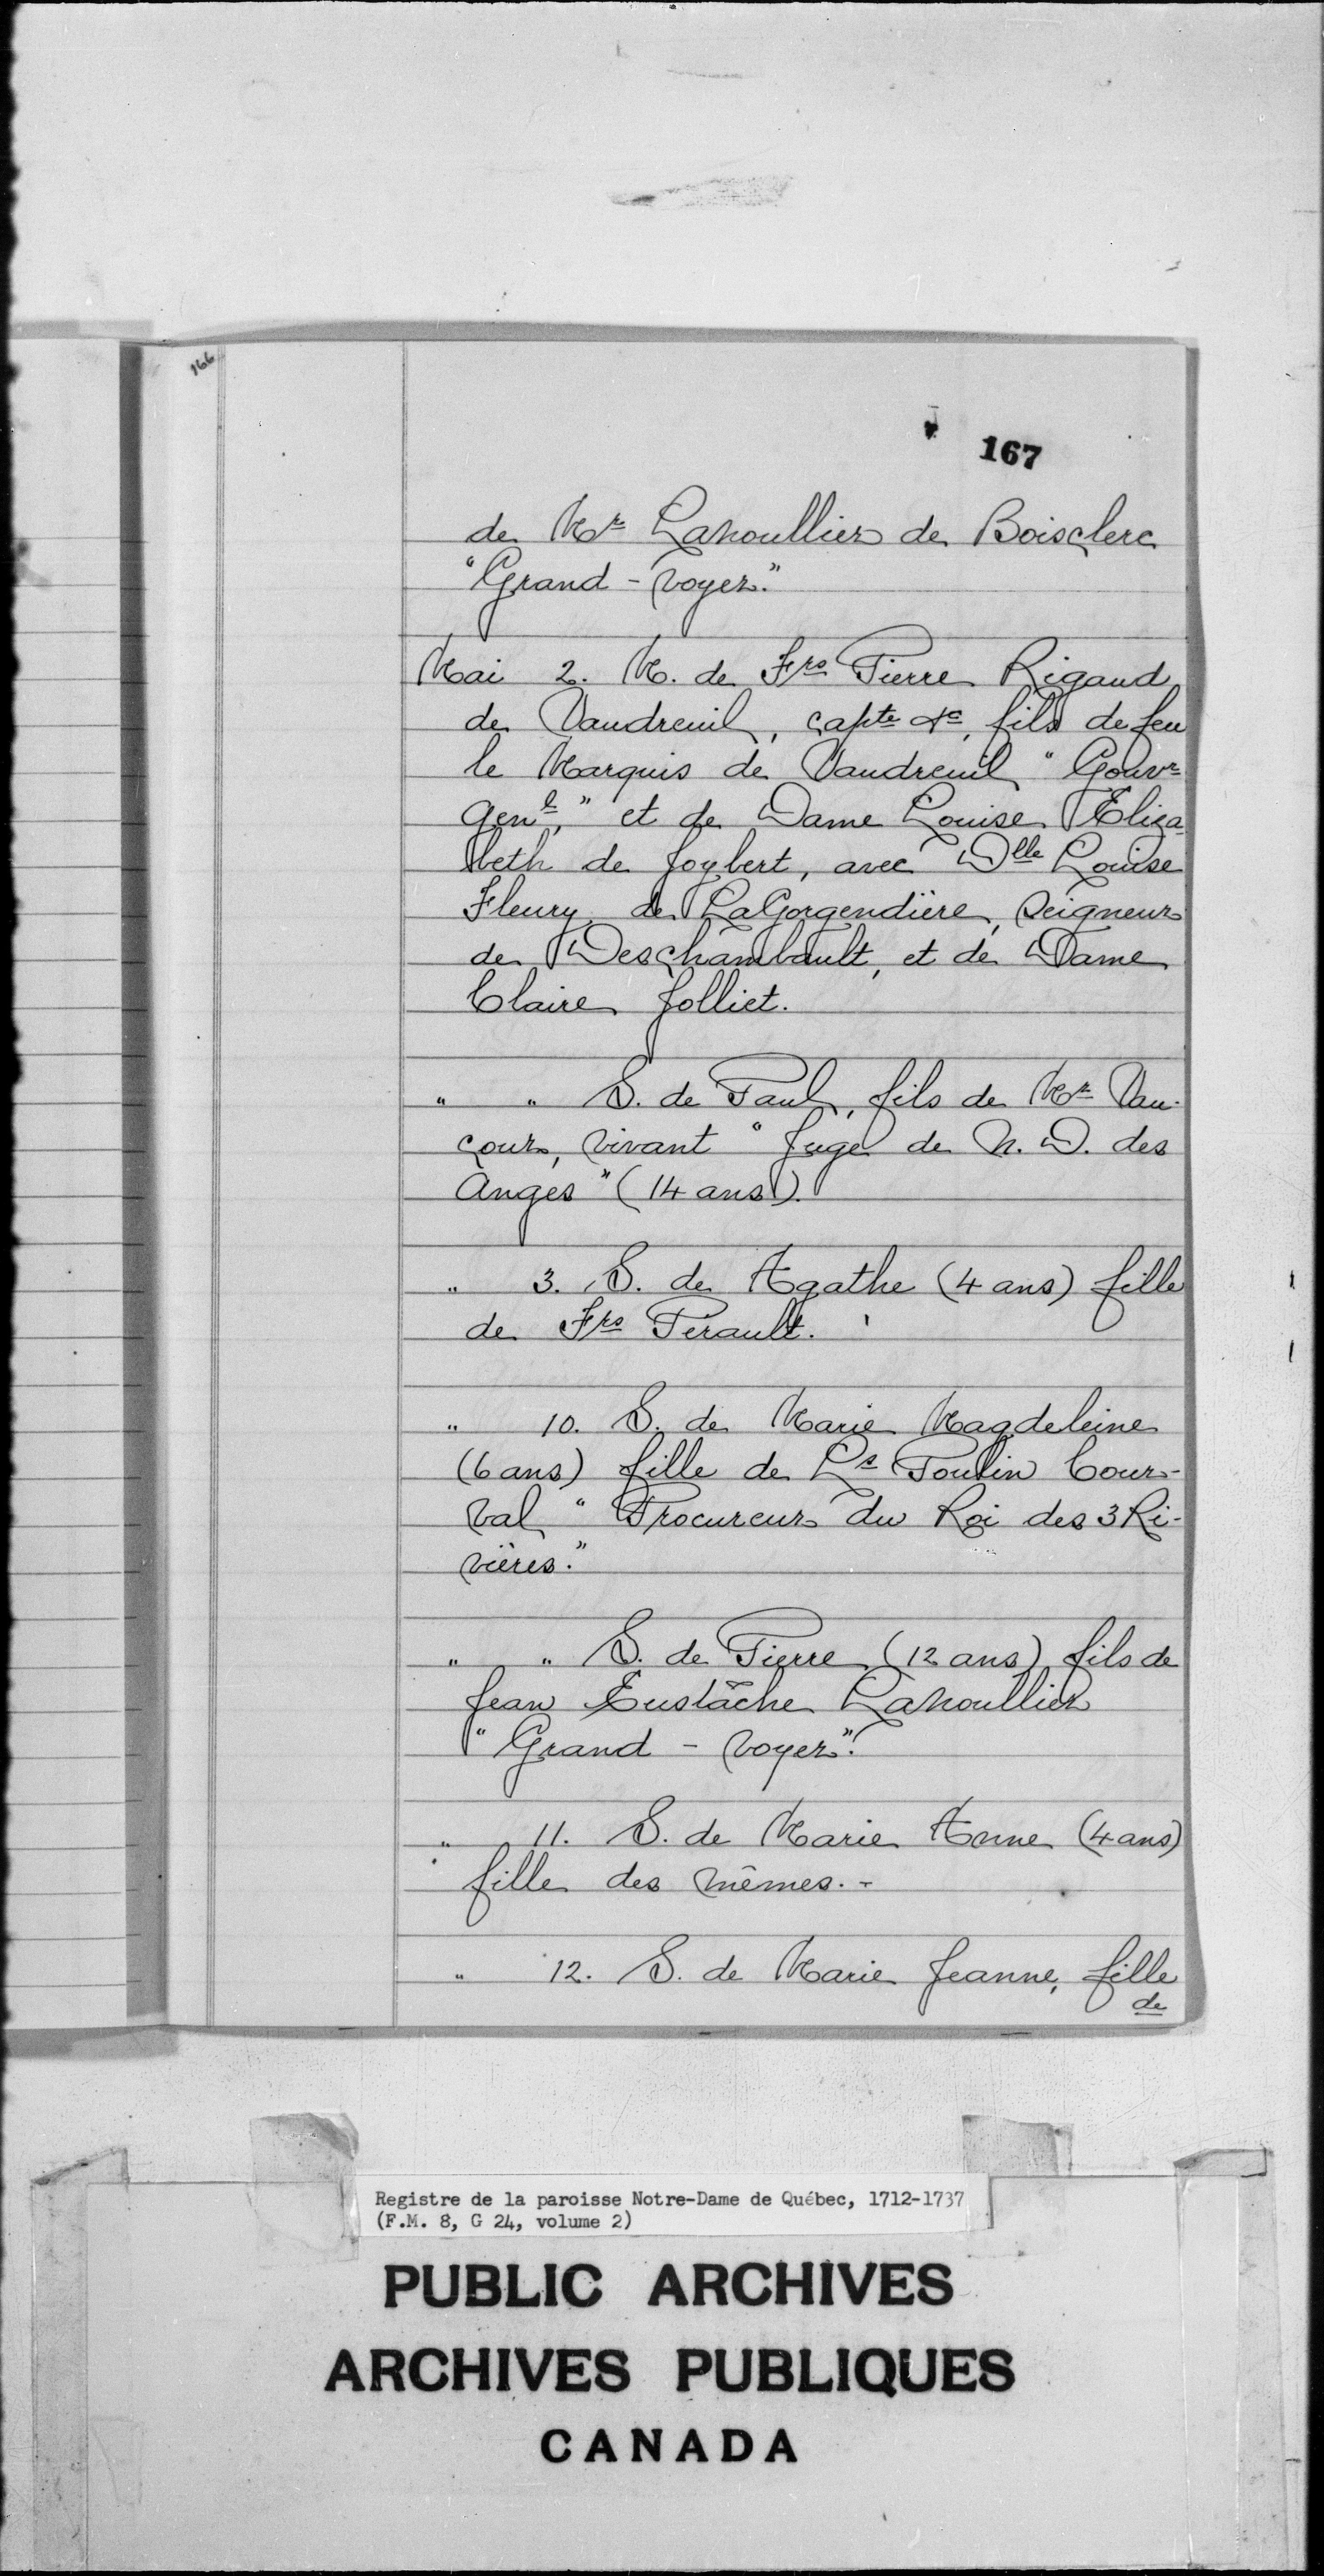 166
167
de Mr Lanoullier de Boisclerc
"Grand-voyer."
Mai 2. M. de Frs Pierre Rigaud
de Vaudreuil, capte &c, fils de feu
le Marquis de Vaudreuil "Gouvr
Genl," et de Dame Louise Eliza-
beth de Joybert, avec Dlle Louise
Fleury de LaGorgendière, Seigneur
de Deschambault, et de Dame
Claire Jolliet.
" " S. de Paul, fils de Mr Vau-
cour, vivant "Juge de N. D. des
Anges" (14 ans).
" 3. S. de Agathe (4 ans) fille
de Frs Pérault.
" 10. S. de Marie Magdeleine
(6 ans) fille de Ls Poulin Cour-
val "Procureur du Roi des 3 Ri-
vières."
" " S. de Pierre (12 ans) fils de
Jean Eustâche Lanoullier
"Grand-voyer".
" 11. S. de Marie Anne (4 ans)
fille des mêmes. -
" 12. S. de Marie Jeanne, fille
de
Registre de la paroisse Notre-Dame de Québec, 1712-1737
(F.M. 8, G 24, volume 2)
PUBLIC ARCHIVES
ARCHIVES PUBLIQUES
CANADA